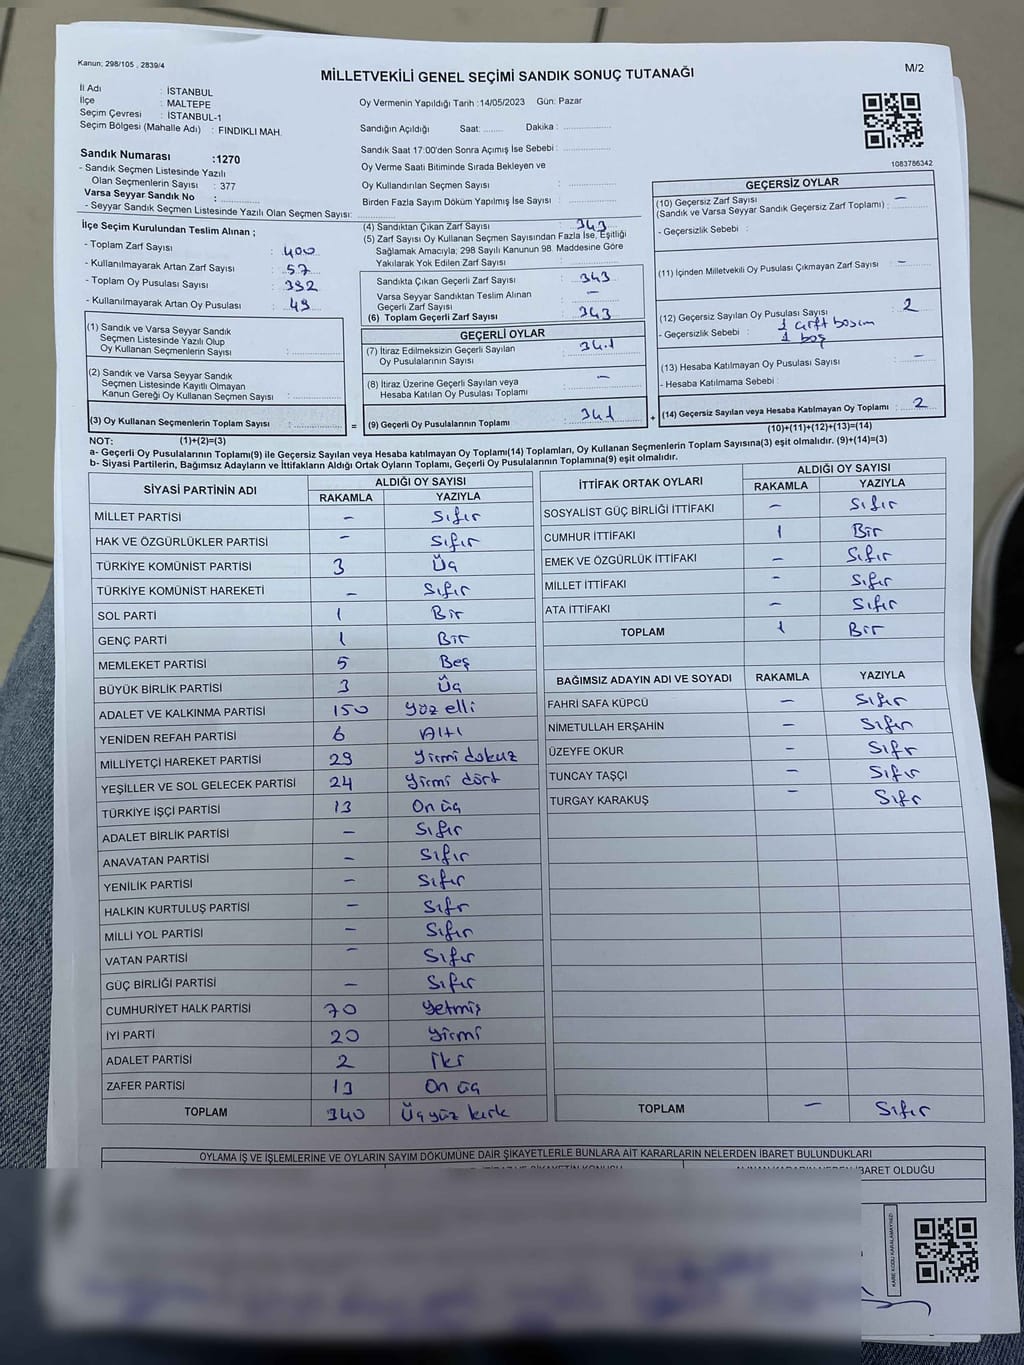 Kanun; 298/105 , 2839/4
MİLLETVEKİLİ GENEL SEÇİMİ SANDIK SONUÇ TUTANAĞI
M/2
İl Adı : İSTANBUL
İlçe : MALTEPE
Seçim Çevresi : İSTANBUL-1
Seçim Bölgesi (Mahalle Adı) : FINDIKLI MAH.
Sandık Numarası :1270
- Sandık Seçmen Listesinde Yazılı
Olan Seçmenlerin Sayısı : 377
Varsa Seyyar Sandık No :
- Seyyar Sandık Seçmen Listesinde Yazılı Olan Seçmen Sayısı:
Oy Vermenin Yapıldığı Tarih :14/05/2023 Gün: Pazar
Sandığın Açıldığı Saat: ........ Dakika :
Sandık Saat 17:00'den Sonra Açımış İse Sebebi :
Oy Verme Saati Bitiminde Sırada Bekleyen ve
Oy Kullandırılan Seçmen Sayısı :
Birden Fazla Sayım Döküm Yapılmış İse Sayısı :
1083786342
İlçe Seçim Kurulundan Teslim Alınan ;
- Toplam Zarf Sayısı : 400
- Kullanılmayarak Artan Zarf Sayısı : 57
- Toplam Oy Pusulası Sayısı : 392
- Kullanılmayarak Artan Oy Pusulası : 49
(1) Sandık ve Varsa Seyyar Sandık
Seçmen Listesinde Yazılı Olup
Oy Kullanan Seçmenlerin Sayısı :
(2) Sandık ve Varsa Seyyar Sandık
Seçmen Listesinde Kayıtlı Olmayan
Kanun Gereği Oy Kullanan Seçmen Sayısı :
(3) Oy Kullanan Seçmenlerin Toplam Sayısı :
(1)+(2)=(3)
(4) Sandıktan Çıkan Zarf Sayısı : 343
(5) Zarf Sayısı Oy Kullanan Seçmen Sayısından Fazla İse, Eşitliği
Sağlamak Amacıyla; 298 Sayılı Kanunun 98. Maddesine Göre
Yakılarak Yok Edilen Zarf Sayısı :
Sandıkta Çıkan Geçerli Zarf Sayısı : 343
Varsa Seyyar Sandıktan Teslim Alınan
Geçerli Zarf Sayısı : –
(6) Toplam Geçerli Zarf Sayısı : 343
GEÇERLİ OYLAR
(7) İtiraz Edilmeksizin Geçerli Sayılan
Oy Pusulalarının Sayısı : 341
(8) İtiraz Üzerine Geçerli Sayılan veya
Hesaba Katılan Oy Pusulası Toplamı : –
= (9) Geçerli Oy Pusulalarının Toplamı : 341
GEÇERSİZ OYLAR
(10) Geçersiz Zarf Sayısı : –
(Sandık ve Varsa Seyyar Sandık Geçersiz Zarf Toplamı)
- Geçersizlik Sebebi :
(11) İçinden Milletvekili Oy Pusulası Çıkmayan Zarf Sayısı : –
(12) Geçersiz Sayılan Oy Pusulası Sayısı : 2
- Geçersizlik Sebebi : 1 çift basım
1 boş
(13) Hesaba Katılmayan Oy Pusulası Sayısı : –
- Hesaba Katılmama Sebebi :
+ (14) Geçersiz Sayılan veya Hesaba Katılmayan Oy Toplamı : 2
(10)+(11)+(12)+(13)=(14)
NOT:
a- Geçerli Oy Pusulalarının Toplamı(9) ile Geçersiz Sayılan veya Hesaba katılmayan Oy Toplamı(14) Toplamları, Oy Kullanan Seçmenlerin Toplam Sayısına(3) eşit olmalıdır. (9)+(14)=(3)
b- Siyasi Partilerin, Bağımsız Adayların ve İttifakların Aldığı Ortak Oyların Toplamı, Geçerli Oy Pusulalarının Toplamına(9) eşit olmalıdır.
SİYASİ PARTİNİN ADI ALDIĞI OY SAYISI
RAKAMLA YAZIYLA
MİLLET PARTİSİ – Sıfır
HAK VE ÖZGÜRLÜKLER PARTİSİ – Sıfır
TÜRKİYE KOMÜNİST PARTİSİ 3 Üç
TÜRKİYE KOMÜNİST HAREKETİ – Sıfır
SOL PARTİ 1 Bir
GENÇ PARTİ 1 Bir
MEMLEKET PARTİSİ 5 Beş
BÜYÜK BİRLİK PARTİSİ 3 Üç
ADALET VE KALKINMA PARTİSİ 150 Yüz elli
YENİDEN REFAH PARTİSİ 6 Altı
MİLLİYETÇİ HAREKET PARTİSİ 29 Yirmi dokuz
YEŞİLLER VE SOL GELECEK PARTİSİ 24 Yirmi dört
TÜRKİYE İŞÇİ PARTİSİ 13 On üç
ADALET BİRLİK PARTİSİ – Sıfır
ANAVATAN PARTİSİ – Sıfır
YENİLİK PARTİSİ – Sıfır
HALKIN KURTULUŞ PARTİSİ – Sıfr
MİLLİ YOL PARTİSİ – Sıfır
VATAN PARTİSİ – Sıfır
GÜÇ BİRLİĞİ PARTİSİ – Sıfır
CUMHURİYET HALK PARTİSİ 70 Yetmiş
İYİ PARTİ 20 Yirmi
ADALET PARTİSİ 2 İki
ZAFER PARTİSİ 13 On üç
TOPLAM 340 Üçyüz kırk
İTTİFAK ORTAK OYLARI ALDIĞI OY SAYISI
RAKAMLA YAZIYLA
SOSYALİST GÜÇ BİRLİĞİ İTTİFAKI – Sıfır
CUMHUR İTTİFAKI 1 Bir
EMEK VE ÖZGÜRLÜK İTTİFAKI – Sıfır
MİLLET İTTİFAKI – Sıfır
ATA İTTİFAKI – Sıfır
TOPLAM 1 Bir
BAĞIMSIZ ADAYIN ADI VE SOYADI RAKAMLA YAZIYLA
FAHRİ SAFA KÜPCÜ – Sıfır
NİMETULLAH ERŞAHİN – Sıfır
ÜZEYFE OKUR – Sıfr
TUNCAY TAŞÇI – Sıfır
TURGAY KARAKUŞ – Sıfr
TOPLAM – Sıfır
OYLAMA İŞ VE İŞLEMLERİNE VE OYLARIN SAYIM DÖKÜMÜNE DAİR ŞİKAYETLERLE BUNLARA AİT KARARLARIN NELERDEN İBARET BULUNDUKLARI
İBARET OLDUĞU
KARE KODU KARALAMAYINIZ!